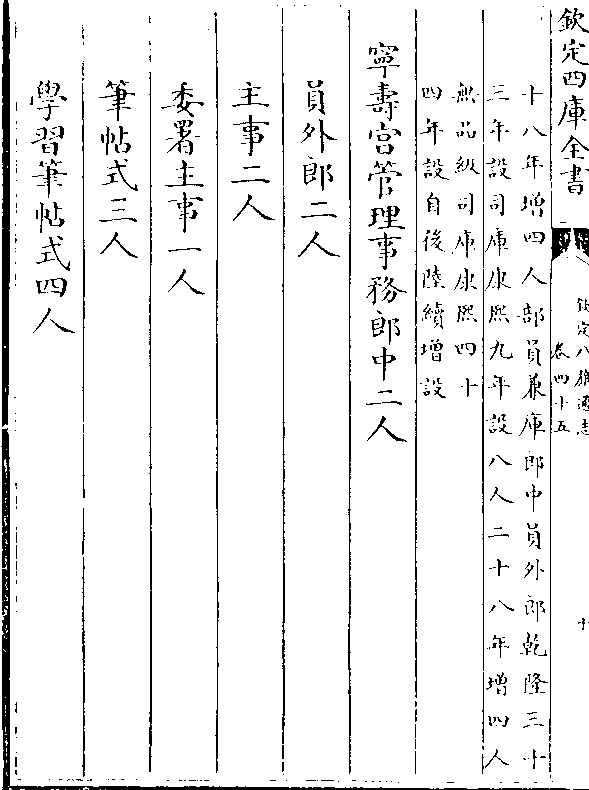 欽定四庫全書
欽定八旗通志
卷四十五
十
十八年增四人部員兼庫郎中員外郎乾隆三十
三年設司庫康熙九年設八人二十八年增四人
無品級司庫康熙四十
四年設自後陸續增設
寧壽宮管理事務郎中二人
員外郎二人
主事二人
委署主事一人
筆帖式三人
學習筆帖式四人